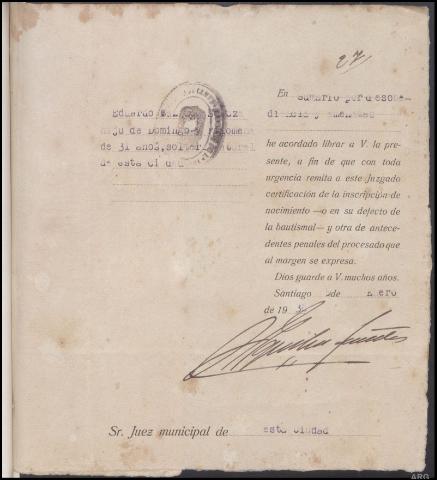 27
En sumario por desobe-
diencia y amenazas
Eduardo
hijo de Domingo y Filomena
de 31 años, soltero, natural
de esta ciudad
he acordado librar a V. la pre-
sente, a fin de que con toda
urgencia remita a este juzgado
certificación de la inscripción de
nacimiento —o en su defecto de
la bautismal— y otra de antece-
dentes penales del procesado que
al margen se expresa.
Dios guarde a V. muchos años.
Santiago de Enero
de 19
Sr. Juez municipal de esta ciudad
ARG